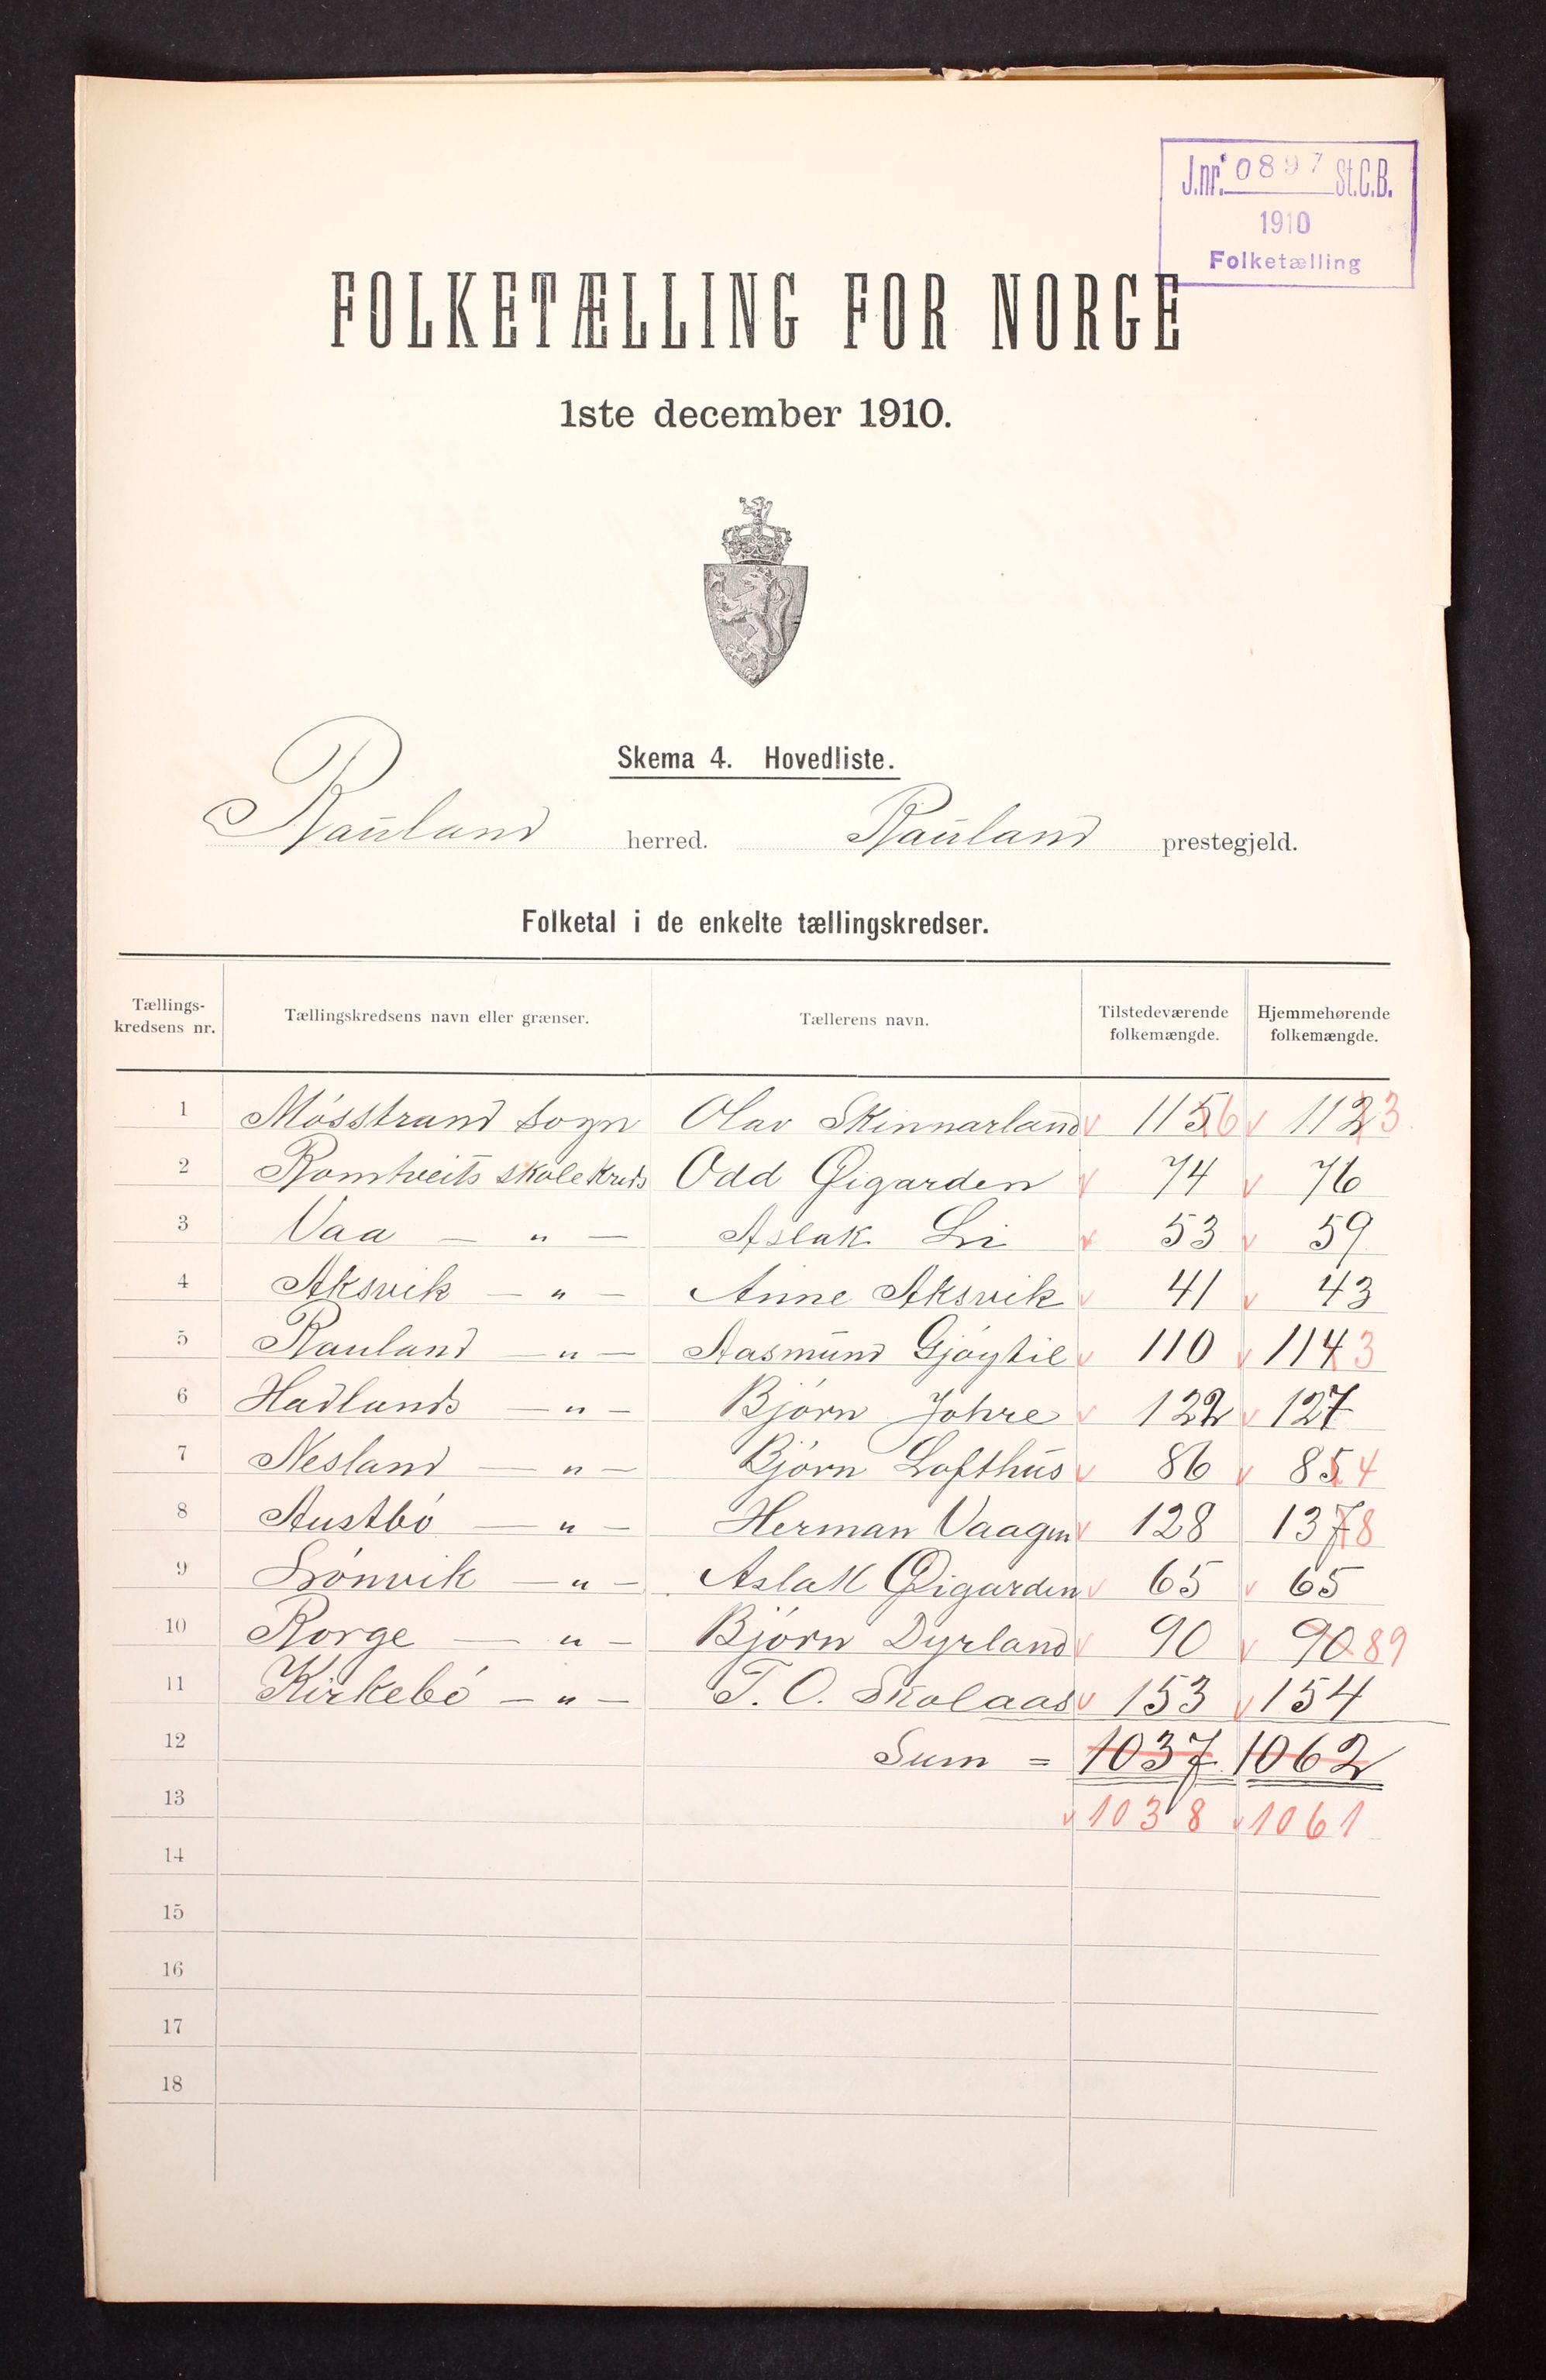 J.nr. 0897 St.C.B.
1910
Folketælling
FOLKETÆLLING FOR NORGE
1ste december 1910.
Skema 4. Hovedliste.
Rauland herred. Rauland prestegjeld.
Folketal i de enkelte tællingskredser.
Tællings-kredsens nr. Tællingskredsens navn eller grænser. Tællerens navn. Tilstedeværende folkemængde. Hjemmehørende folkemængde.
1 Mósstrand sogn Olav Skinnarland v 115 6 v 112 3
2 Romtveits skolekreds Odd Øigarden v 74 v 76
3 Vaa — " — Aslak Li v 53 v 59
4 Aksvik — " — Anne Aksvik v 41 v 43
5 Rauland — " — Aasmund Gjóytil v 110 v 114 3
6 Hadlands — " — Bjórn Johre v 122 v 127
7 Nesland — " — Bjórn Lofthus v 86 v 85 4
8 Austbó — " — Herman Vaagen v 128 137 8
9 Lónvik — " — Aslak Øigarden v 65 v 65
10 Rorge — " — Bjórn Dyrland v 90 v 90 89
11 Kirkebó — " — T. O. Skolaas v 153 v 154
12 Sum = 1037 1062
13 v 1038 v 1061
14
15
16
17
18